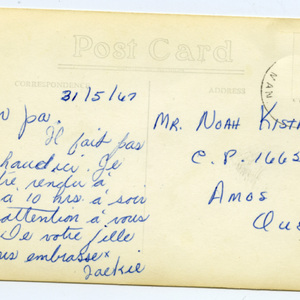 Post Card
CORRESPONDENCE
ADDRESS
NAN
31/5/67
pa.
Il fait pas
haud ici. Je
rendu à
a 10 hrs à soir
attention à vous
De votre fille
embrasse x
Jackie
MR. NOAH KIST
C.P. 1665
AMOS
QUE